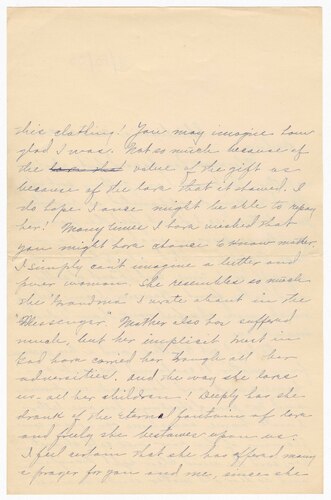 this clothing! You may imagine how
glad I was. Not so much because of
the value of the gift as
because of the love that it showed. I
do hope I once might be able to repay
her! Many times I have wished that
you might have chance to know mother.
I simply can't imagine a better and
purer woman. She resembles so much
the "Grandma" I wrote about in the
"Messenger." Mother also has suffered
much, but her implicit trust in
God have carried her though all her
adversities. And the way she loves
us - all her children! Deeply has she
drank of the eternal fontains of love
and freely she bestower upon us.
I feel certain that she has offered many
a prayer for you and me, since she